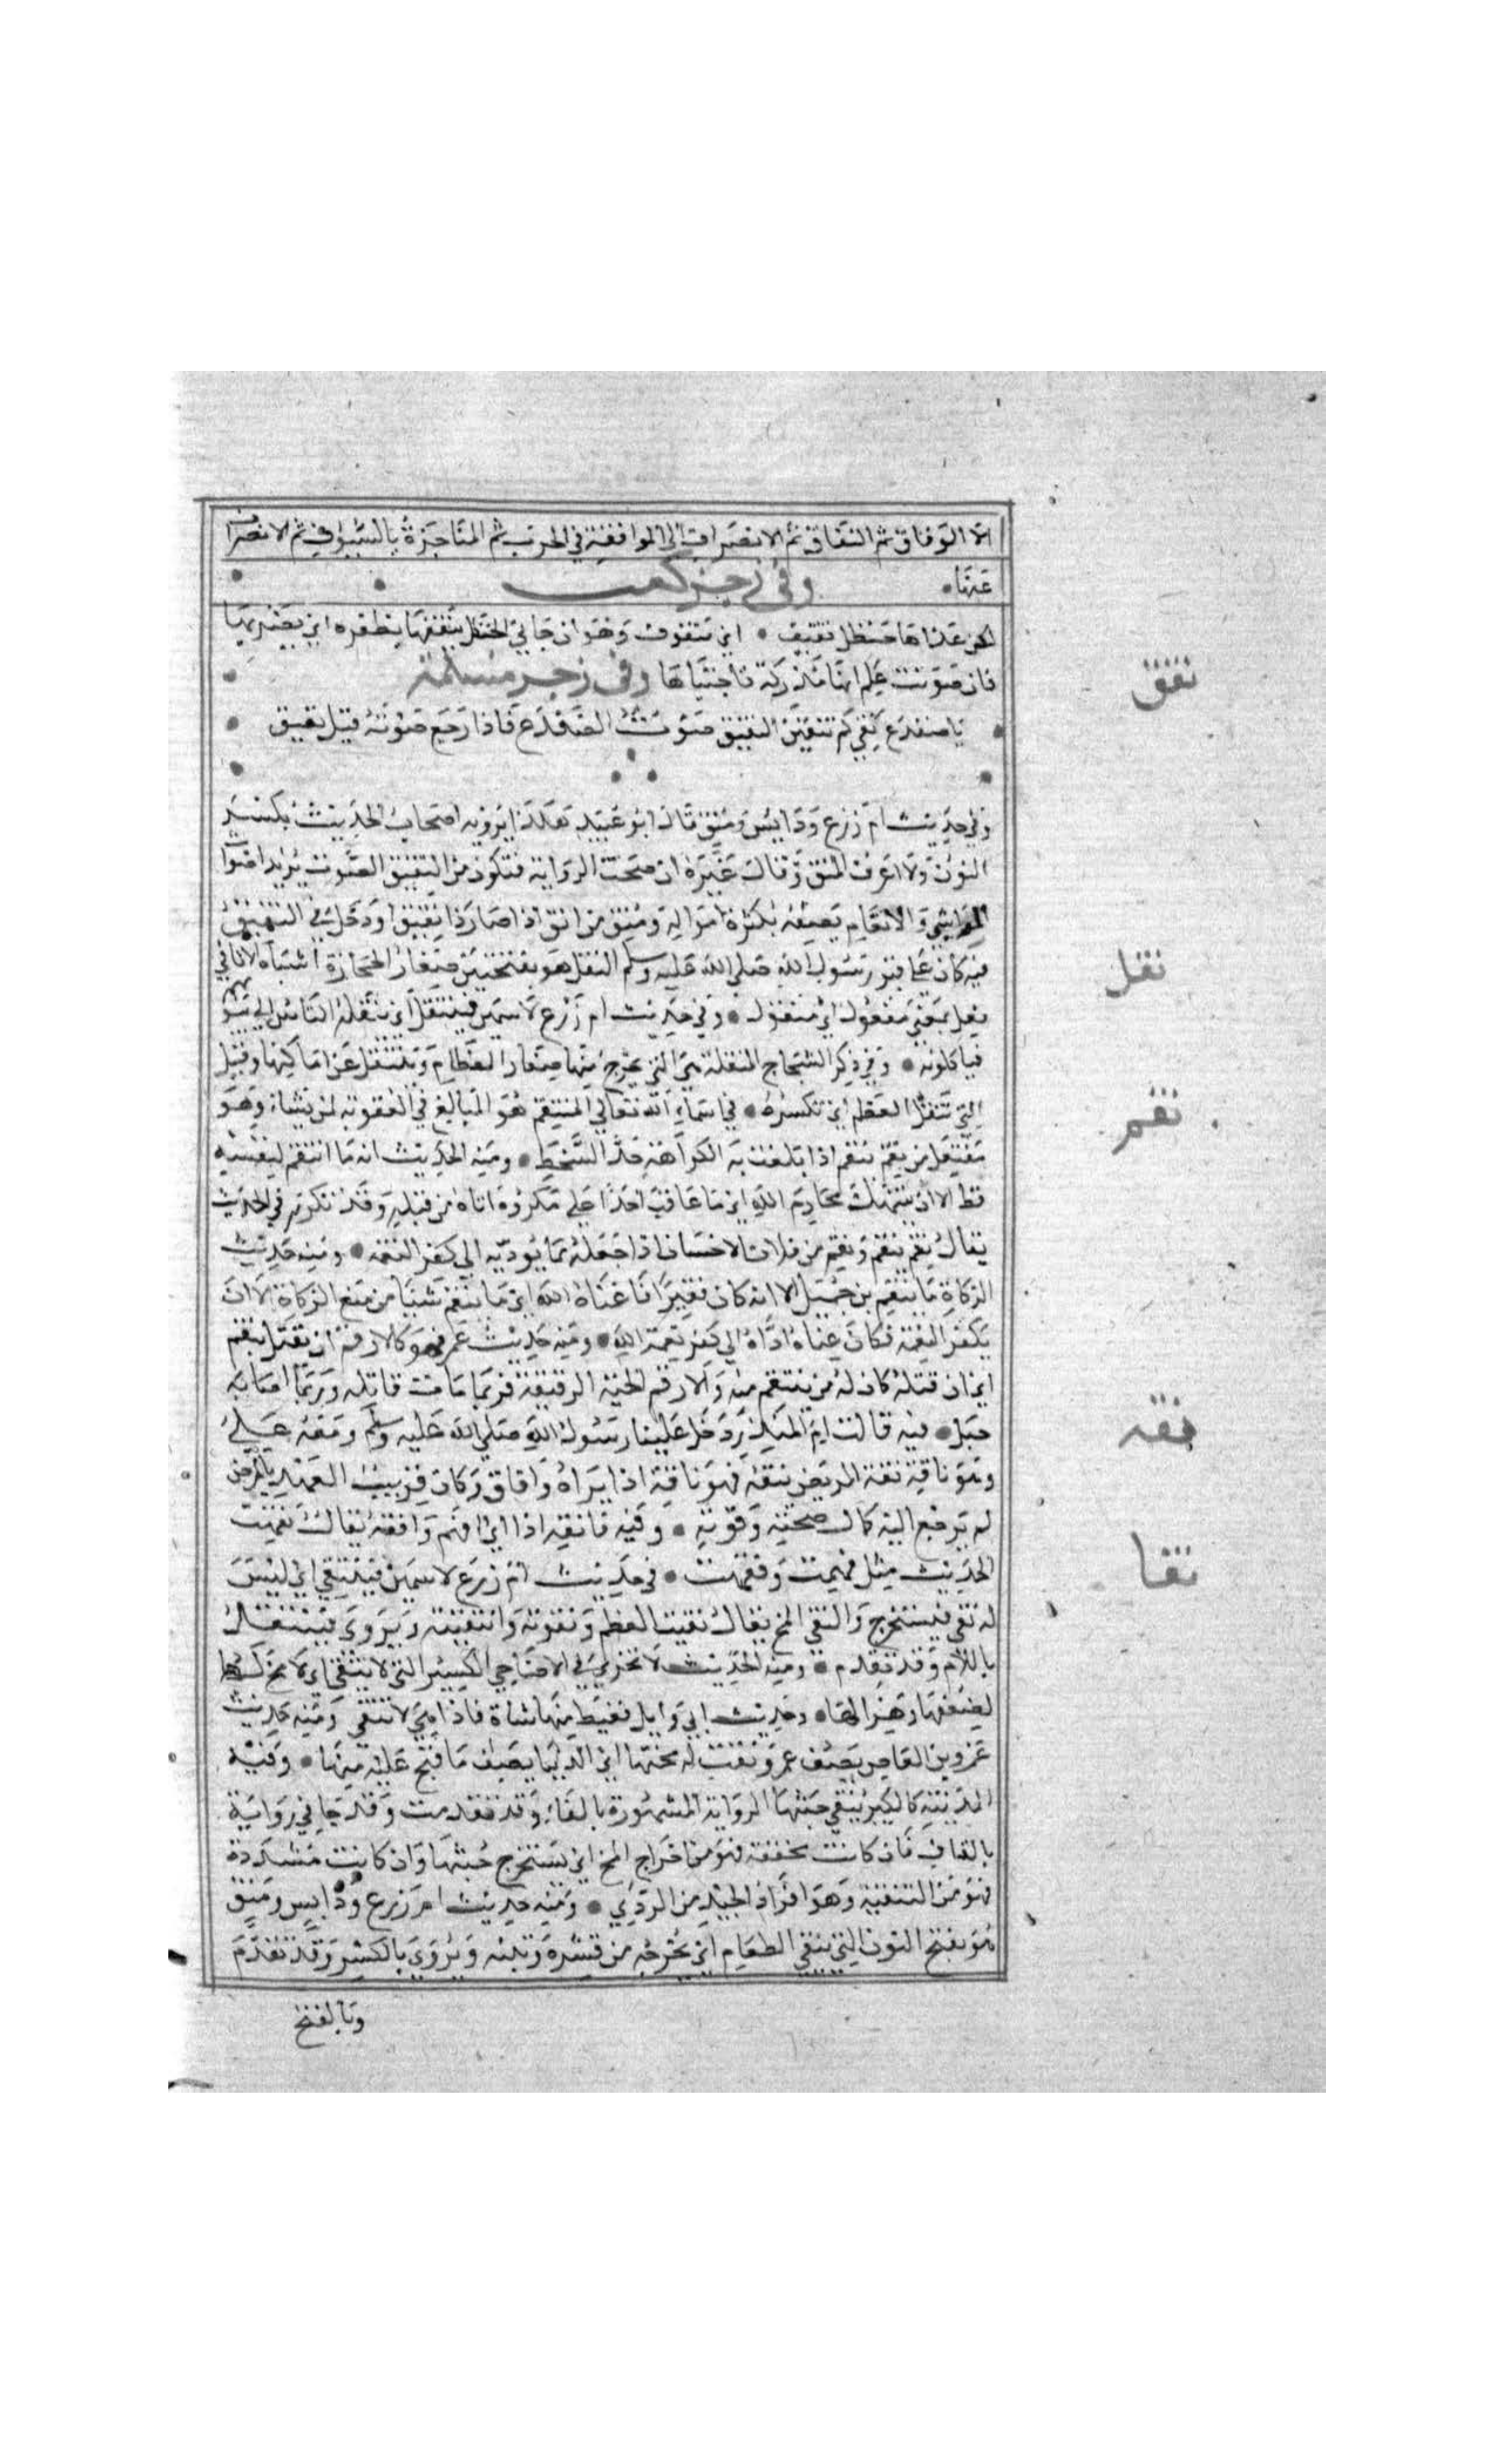 الا الوفاق ثم النقاف ثم الانصراف اي الموافقة في الحرب ثم المناجزة بالسيوف ثم الانصراف
عنها وفي رجز كعب
لكن غذاها حنظل نقيف اي منقوف وهو ان جاني الحنظل ينقفها بظفره اي يضربها
فان صوتت علم انها مدركة فاجتناها وفي رجز مسلمة
يا ضفدع نقي كم تنقين النقيق صوت الضفدع فاذا رجع صوته قيل نقيق
نقق
وفي حديث ام زرع ودايس ومنق قال ابو عبيد هكذا يرويه اصحاب الحديث بكسر
النون ولا اعرف المنق وقال غيره ان صحت الرواية فتكون من النقيق الصوت يريد اصوات
المواشي والانعام تصفه بكثرة امواله ومنق من انق اذا صار ذا نقيق او دخل في النقيق
فيه كان على قبر رسول الله صلى الله عليه وسلم النقل هو بفتحتين صغار الحجارة اشباه الاثافي
نقل
فعل بمعنى مفعول اي منقول وفي حديث ام زرع لا سمين فينتقل اي ينقله الناس الى بيوتهم
فياكلونه وفي ذكر الشجاج المنقلة هي التي يخرج منها صغار العظام وتنتقل عن اماكنها وقيل
التي تنقل العظم اي تكسره في اسماء الله تعالى المنتقم هو المبالغ في العقوبة لمن يشاء وهو
نقم
مفتعل من نقم ينقم اذا بلغت به الكراهة حد السخط ومنه الحديث انه ما انتقم لنفسه
قط الا ان ينتهك محارم الله اي ما عاقب احدا على مكروه اتاه من قبله وقد تكرر في الحديث
يقال نقم ينقم ونقم من فلان الاحسان اذا جعله مما يوديه الى كفر النعمة ومنه حديث
الزكاة ما ينقم بن جميل الا انه كان فقيرا فاغناه الله اي ما ينقم شيئا من منع الزكاة الا ان
يكفر النعمة فكان غناه اداه الى كفر نعمة الله ومنه حديث عمر فهو كالارقم ان يقتل ينقم
اي ان قتله كان له من ينتقم منه والارقم الحية الرقيقة فربما مات قاتله وربما اصابه
خبل فيه قالت ام المنذر دخل علينا رسول الله صلى الله عليه وسلم ومعه علي
نقه
وهو ناقه نقه المريض ينقه فهو ناقه اذا برا وافاق وكان قريب العهد بالمرض
لم يرجع اليه كمال صحته وقوته وفيه فانقه اذا اي افهم وافقه يقال نقهت
الحديث مثل فهمت وفقهت في حديث ام زرع لا سمين فينتقي اي ليس
نقا
له نقي فيستخرج والنقي المخ يقال نقيت العظم ونقوته وانتقيته ويروى فينتقل
باللام وقد تقدم ومنه الحديث لا تجزي في الاضاحي الكسير التي لا تنقي اي لا مخ لها
لضعفها وهزالها وحديث ابي وايل فغبط منها شاة فاذا هي لا تنقي ومنه حديث
عمرو بن العاص يصف عمر ونقت له مختها اي الدنيا يصف ما فتح عليه منها وفيه
المدينة كالكير تنقي خبثها الرواية المشهورة بالفاء وقد تقدمت وقد جا في رواية
بالقاف فان كانت مخففة فهو من اخراج المخ اي يستخرج خبثها وان كانت مشددة
فهو من التنقية وهو افراز الجيد من الردي ومنه حديث ام زرع ودايس ومنق
هو بفتح النون الذي ينقي الطعام اي يخرجه من قشره وتبنه ويروى بالكسر وقد تقدم
وبالفتح